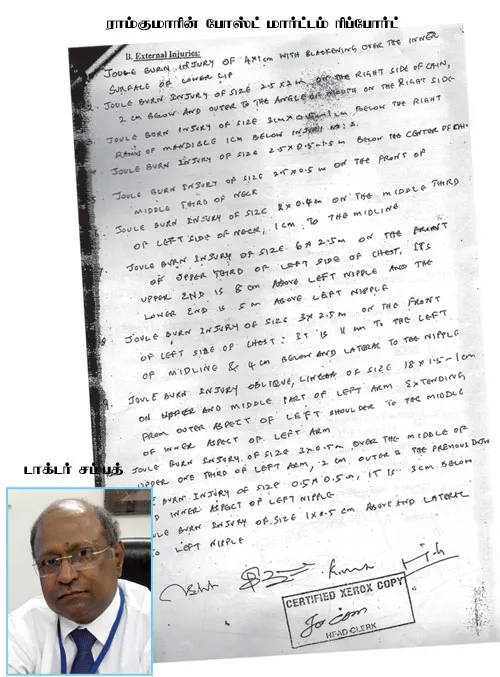 ராம்குமாரின் போஸ்ட் மார்ட்டம் ரிப்போர்ட்
B. External Injuries:
JOULE BURN INJURY OF 4X1CM WITH BLACKENING OVER THE INNER
SURFACE OF LOWER LIP
2. JOULE BURN INJURY OF SIZE 2.5X2M ON THE RIGHT SIDE OF CHIN,
2 CM BELOW AND OUTER TO THE ANGLE OF MOUTH ON THE RIGHT SIDE
3. JOULE BURN INJURY OF SIZE 3CMX0.5-1CM BELOW THE RIGHT
RAMUS OF MANDIBLE 1CM BELOW INJURY NO: 2.
JOULE BURN INJURY OF SIZE 2.5X0.5-1.5M BELOW THE CENTER OF CHIN
JOULE BURN INJURY OF SIZE 2.5X0.5M ON THE FRONT OF
MIDDLE THIRD OF NECK
JOULE BURN INJURY OF SIZE ON THE MIDDLE THIRD
OF LEFT SIDE OF NECK, 1CM TO THE MIDLINE
JOULE BURN INJURY OF SIZE 6X2.5M ON THE FRONT
OF UPPER THIRD OF LEFT SIDE OF CHEST, ITS
UPPER END IS 8CM ABOVE LEFT NIPPLE AND THE
LOWER END IS 5M ABOVE LEFT NIPPLE
JOULE BURN INJURY OF SIZE 3X2.5M ON THE FRONT
OF LEFT SIDE OF CHEST: IT IS 11CM TO THE LEFT
OF MIDLINE & 4CM BELOW AND LATERAL TO THE NIPPLE
JOULE BURN INJURY OBLIQUE, LINEAR OF SIZE 18X1.5-1CM
ON UPPER AND MIDDLE PART OF LEFT ARM EXTENDING
FROM OUTER ASPECT OF LEFT SHOULDER TO THE MIDDLE
OF INNER ASPECT OF LEFT ARM
JOULE BURN INJURY OF SIZE 3X0.5M OVER THE MIDDLE OF
UPPER ONE THIRD OF LEFT ARM, 2CM OUTER TO THE PREVIOUS INJURY
BURN INJURY OF SIZE 0.5X0.5M, IT IS 3CM BELOW
INNER ASPECT OF LEFT NIPPLE
BURN INJURY OF SIZE 1X0.5CM ABOVE AND LATERAL
LEFT NIPPLE
CERTIFIED XEROX COPY
HEAD CLERK
டாக்டர் சம்பத்